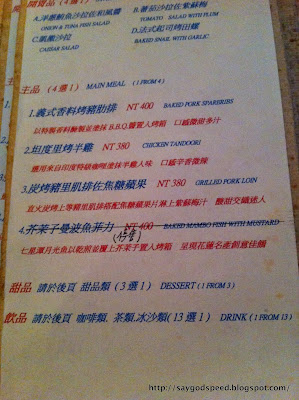 開胃品 (4 選 1)
A.洋蔥鮪魚沙拉佐和風醬 B.蕃茄沙拉佐紫蘇梅
ONION & TUNA FISH SALAD TOMATO SALAD WITH PLUM
C.凱撒沙拉 D.法式起司烤田螺
CAESAR SALAD BAKED SNAIL WITH GARLIC
主品 (4 選 1) MAIN MEAL (1 FROM 4)
1.義式香料烤豬肋排 NT 400 BAKED PORK SPARERIBS
以特製香料醃製並塗抹 B.B.Q.醬置入烤箱 口感微甜多汁
2.坦度里烤半雞 NT 380 CHICKEN TANDOORI
應用來自印度特級咖哩塗抹半雞入味 口感辛香微辣
3.炭烤豬里肌排佐焦糖蘋果 NT 380 GRILLED PORK LOIN
直火炭烤上等豬里肌排搭配焦糖蘋果片淋上紫蘇梅汁 酸甜交織迷人
4.芥茉子曼波魚菲力 NT 400 BAKED MAMBO FISH WITH MUSTARD
七星潭月光魚以乾煎並覆上芥茉子置入烤箱 呈現花蓮名產創意佳餚
甜品 請於後頁 甜品類 (3 選 1) DESSERT (1 FROM 3)
飲品 請於後頁 咖啡類, 茶類,冰沙類 (13 選 1) DRINK (1 FROM 13)
http://saygodspeed.blogspot.com/